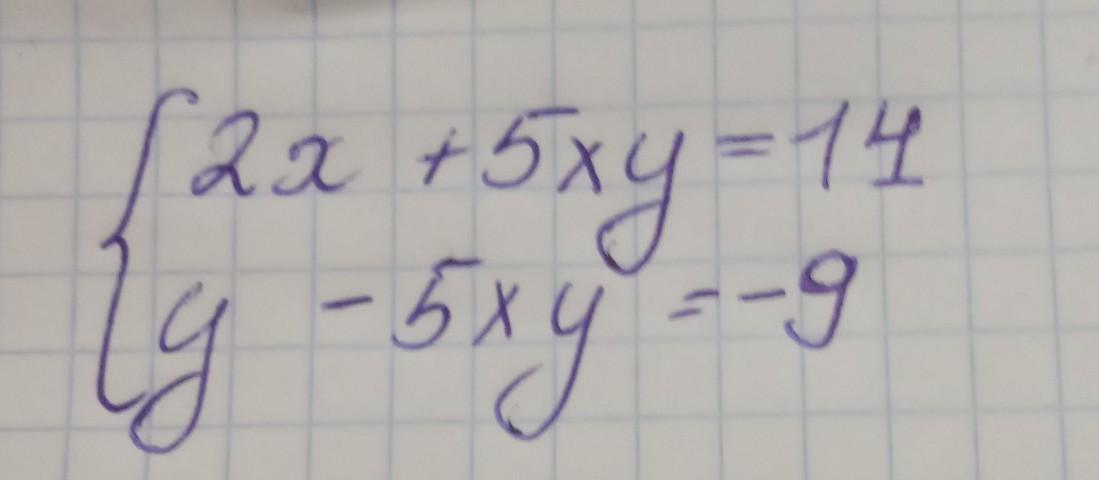 2x + 5xy = 14
y - 5xy = -9